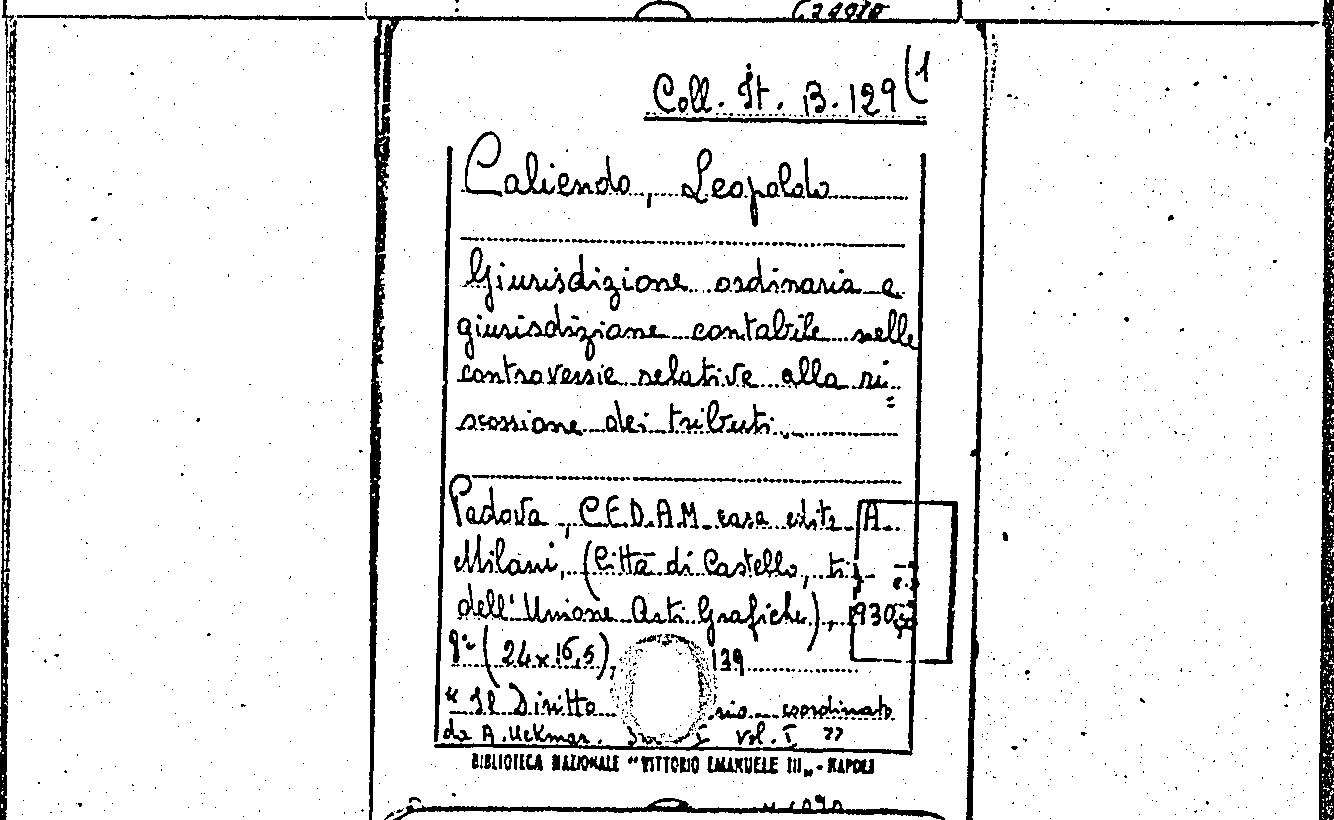 Coll. It. B. 129 (1
Caliendo, Leopoldo
Giurisdizione ordinaria e
giurisdizione contabile nelle
controversie relative alla ri=
scossione dei tributi.
Padova, C.E.D.A.M. casa edit. A.
Milani, (Città di Castello, tip.
dell'Unione Arti Grafiche), 1930
8° (24x16,5), 139
"Il Diritto coordinato
da A. Uckmar. I Vol. I "
BIBLIOTECA NAZIONALE "VITTORIO EMANUELE III„ - NAPOLI